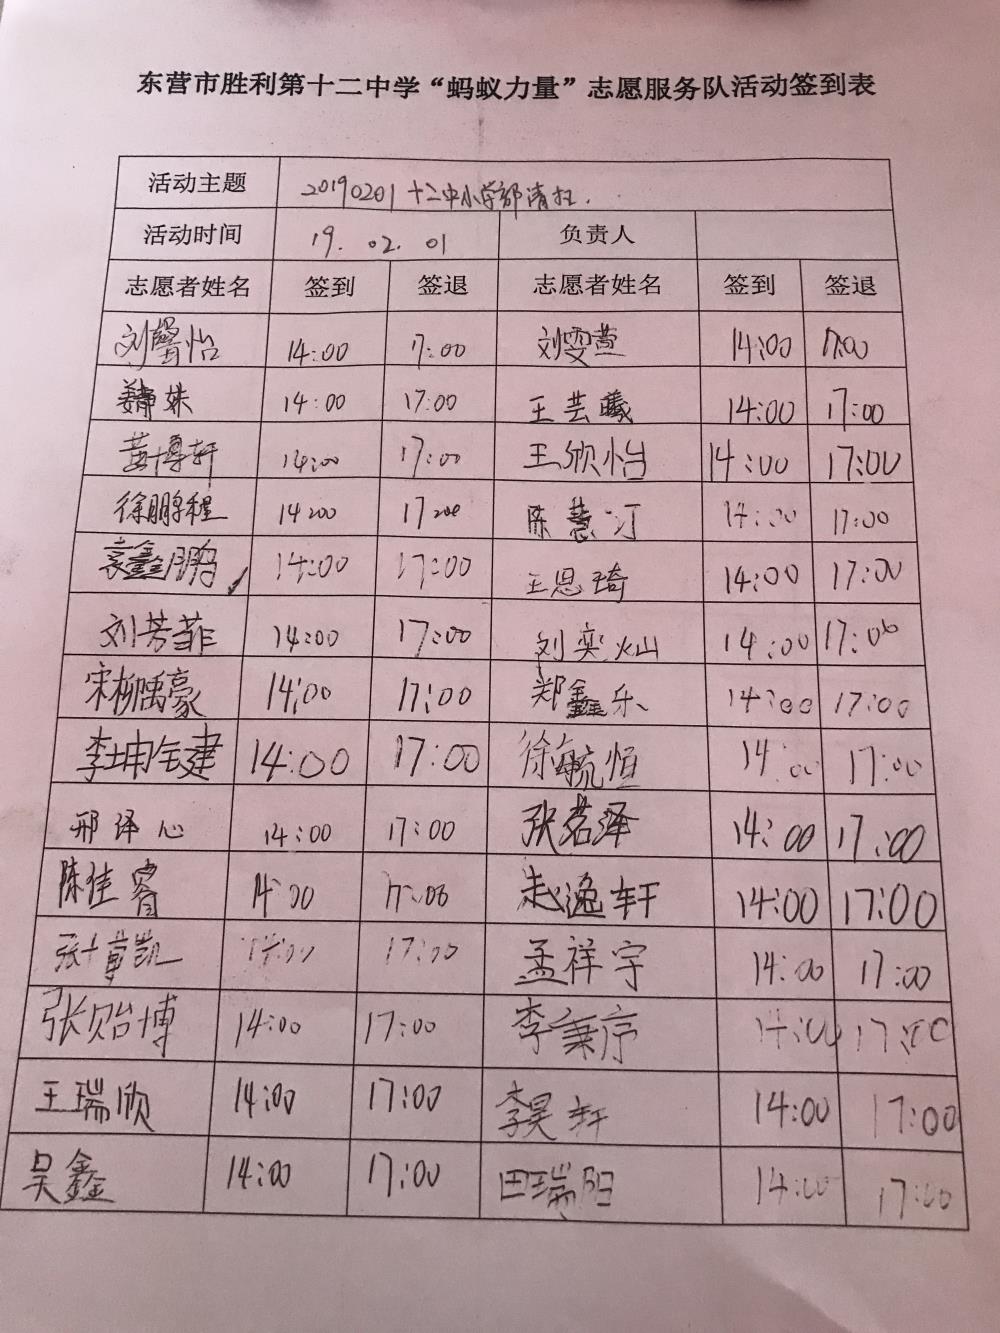 东营市胜利第十二中学“蚂蚁力量”志愿服务队活动签到表
活动主题 20190201 十二中小学部清扫.
活动时间 19. 02. 01 负责人
志愿者姓名 签到 签退 志愿者姓名 签到 签退
刘馨怡 14:00 17:00 刘雯萱 14:00 17:00
姝 14:00 17:00 王芸曦 14:00 17:00
黄博轩 14:00 17:00 王欣怡 14:00 17:00
徐鹏程 14:00 17:00 陈慧汀 14:00 17:00
袁鑫鹏 14:00 17:00 王思琦 14:00 17:00
刘芳菲 14:00 17:00 刘奕灿 14:00 17:00
宋柳禹豪 14:00 17:00 郑鑫乐 14:00 17:00
李坤建 14:00 17:00 徐毓恒 14:00 17:00
邢译心 14:00 17:00 张茗泽 14:00 17:00
陈佳睿 14:00 17:00 赵逸轩 14:00 17:00
张博凯 14:00 17:00 孟祥宇 14:00 17:00
张贻博 14:00 17:00 李秉序 14:00 17:00
王瑞欣 14:00 17:00 李昊轩 14:00 17:00
吴鑫 14:00 17:00 田瑞阳 14:00 17:00